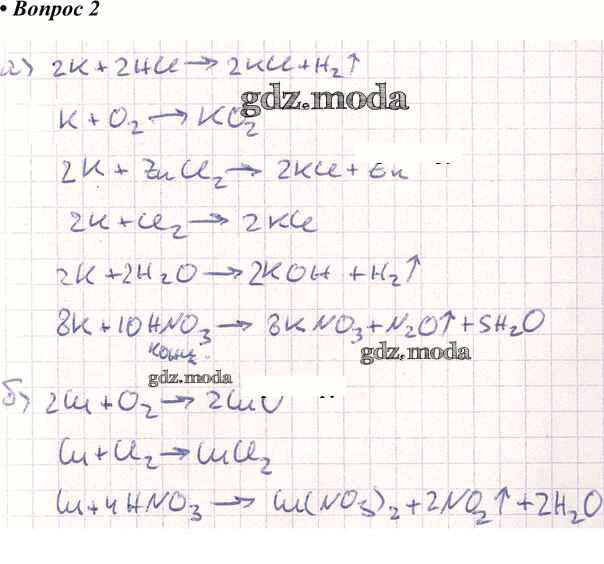 • Вопрос 2
а) 2K + 2HCl → 2KCl + H₂↑
gdz.moda
K + O₂ → KO₂
2K + ZnCl₂ → 2KCl + Zn
2K + Cl₂ → 2KCl
2K + 2H₂O → 2KOH + H₂↑
8K + 10HNO₃ → 8KNO₃ + N₂O↑ + 5H₂O
конц.
gdz.moda
gdz.moda
б) 2Cu + O₂ → 2CuO
Cu + Cl₂ → CuCl₂
Cu + 4HNO₃ → Cu(NO₃)₂ + 2NO₂↑ + 2H₂O